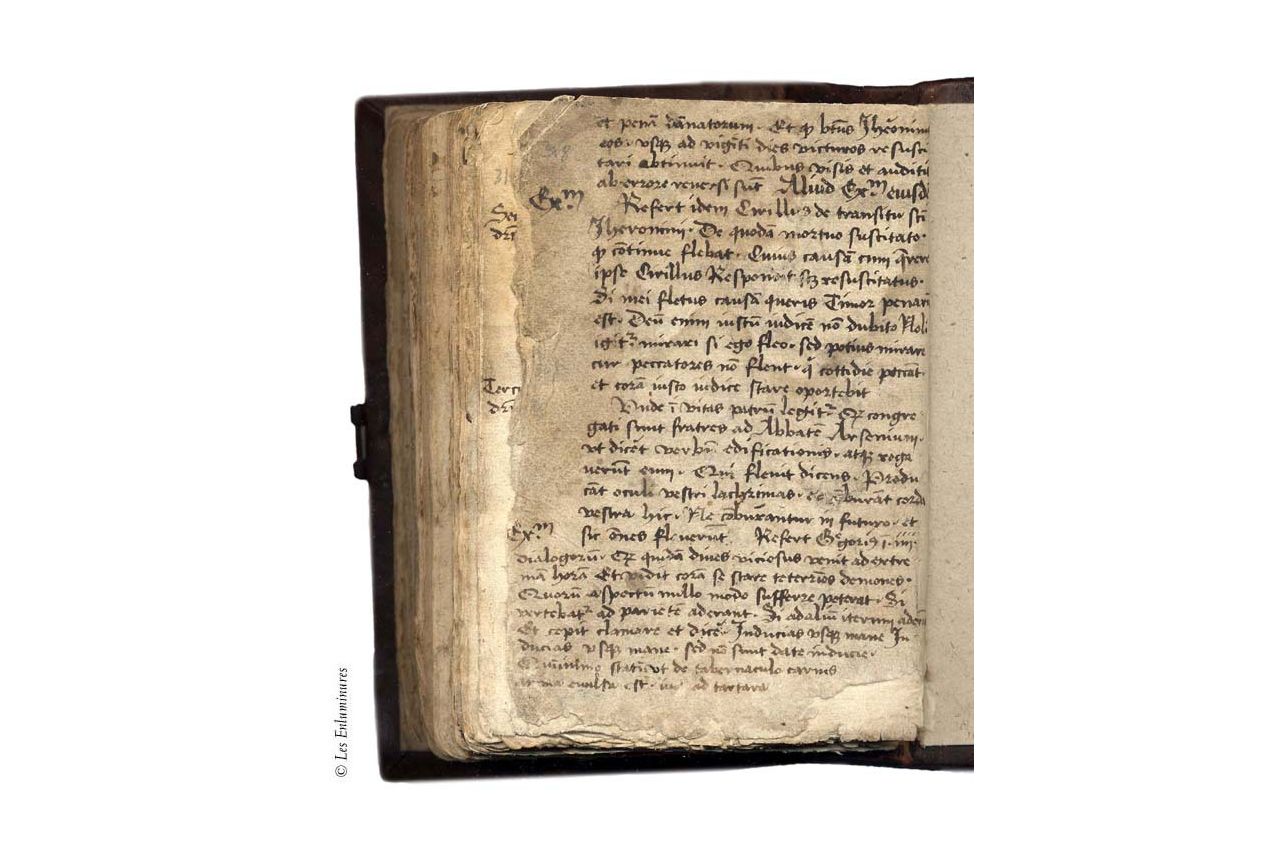 et penā dānatorum · Et qͥ btūs Jheronim
eos · vsqꝫ ad viginti dies victuros resusci
tari obtinuit · Quibus visis et auditis
ab errore reuersi sūt Aliud Exᵐ eiusdē
Exᵐ
Refert idem Cirillus de transitu sci
Jheronimi · De quodā mortuo suscitato ·
qͥ cōtinue flebat · Cuius causā cum q̄rere
ipse Cirillus Respondit sꝫ resuscitatus ·
Si mei fletus causā queris Timor penarū
est · Deū enim iustū iudicē nō dubito Noli
igitᷣ mirari si ego fleo · sed potius mirare
cur peccatores nō flent · qͥ cottidie peccāt
et corā iusto iudice stare oportebit
Vnde ī vitas patrū legitᷣ Qꝫ congre
gati sunt fratres ad Abbatē Arsenium ·
vt dicēt verbū edificationis · atqꝫ roga
uerūt eum · Qui fleuit dicens · Produ
cāt oculi vestri lachrimas · et cōburāt corda
vestra hic · Ne cōburantur in futuro · et
sic ōnes fleuerūt Refert Gregorius ī · iiii ·
Exᵐ
dialogorū · Qꝫ quidā diues viciosus venit ad extre
mā horā Et vidit corā se stare teterrios demones ·
Quorū aspectū nullo modo sufferre poterat · Si
vertebatᷣ ad parietē aderant · Si ad aliū iterum aderāt
Et cepit clamare et dicē · Inducias vsqꝫ mane In
ducias vsqꝫ mane · sed nō sunt date inducie ·
statī vt de tabernaculo carnis
euulsa est · ad tartara
Terci
© Les Enluminures